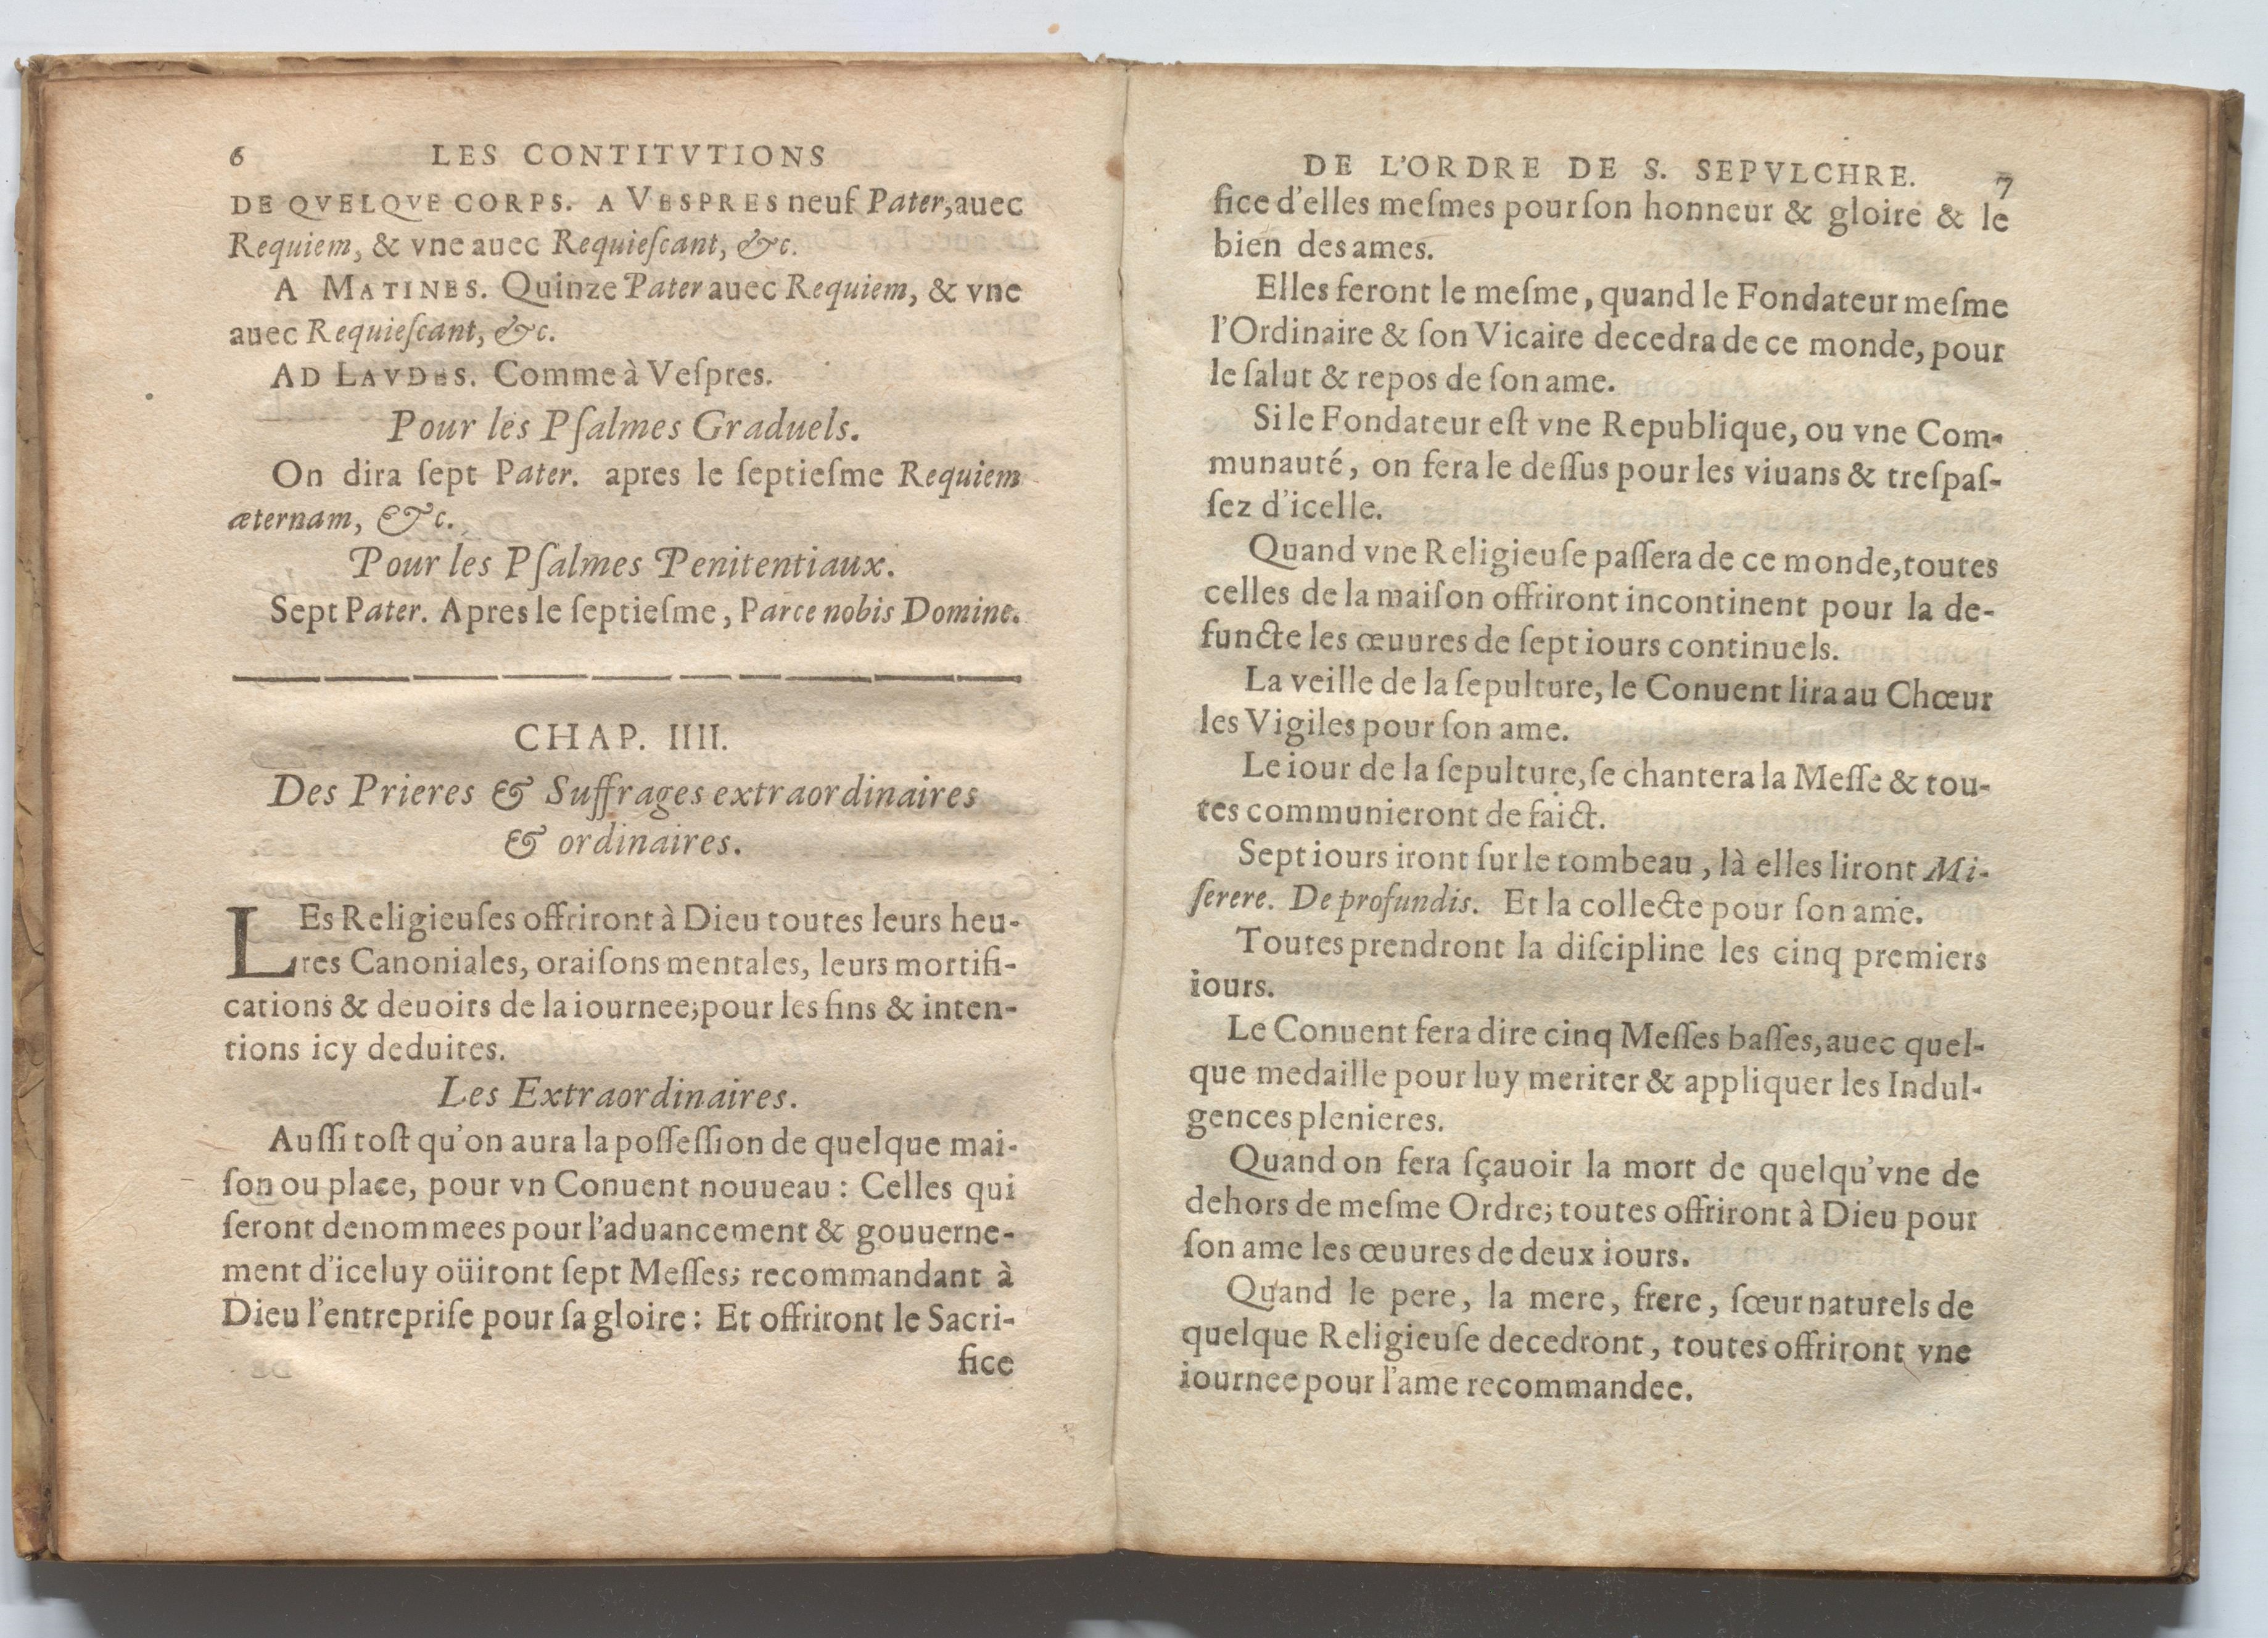 6 LES CONTITVTIONS
DE QVELQVE CORPS. A VESPRES neuf Pater, auec
Requiem, & vne auec Requieſcant, &c.
A MATINES. Quinze Pater auec Requiem, & vne
auec Requieſcant, &c.
AD LAVDES. Comme à Veſpres.
Pour les Pſalmes Graduels.
On dira ſept Pater. apres le ſeptieſme Requiem
æternam, &c.
Pour les Pſalmes Penitentiaux.
Sept Pater. Apres le ſeptieſme, Parce nobis Domine.
CHAP. IIII.
Des Prieres & Suffrages extraordinaires
& ordinaires.
LEs Religieuſes offriront à Dieu toutes leurs heu-
res Canoniales, oraiſons mentales, leurs mortifi-
cations & deuoirs de la iournee; pour les fins & inten-
tions icy deduites.
Les Extraordinaires.
Auſſi toſt qu'on aura la poſſeſſion de quelque mai-
ſon ou place, pour vn Conuent nouueau : Celles qui
ſeront denommees pour l'aduancement & gouuerne-
ment d'iceluy oüiront ſept Meſſes; recommandant à
Dieu l'entrepriſe pour ſa gloire : Et offriront le Sacri-
fice
DE L'ORDRE DE S. SEPVLCHRE. 7
fice d'elles meſmes pour ſon honneur & gloire & le
bien des ames.
Elles feront le meſme, quand le Fondateur meſme
l'Ordinaire & ſon Vicaire decedra de ce monde, pour
le ſalut & repos de ſon ame.
Si le Fondateur eſt vne Republique, ou vne Com-
munauté, on fera le deſſus pour les viuans & treſpaſ-
ſez d'icelle.
Quand vne Religieuſe paſſera de ce monde, toutes
celles de la maiſon offriront incontinent pour la de-
functe les œuures de ſept iours continuels.
La veille de la ſepulture, le Conuent lira au Chœur
les Vigiles pour ſon ame.
Le iour de la ſepulture, ſe chantera la Meſſe & tou-
tes communieront de faict.
Sept iours iront ſur le tombeau, là elles liront Mi-
ſerere. De profundis. Et la collecte pour ſon ame.
Toutes prendront la diſcipline les cinq premiers
iours.
Le Conuent fera dire cinq Meſſes baſſes, auec quel-
que medaille pour luy meriter & appliquer les Indul-
gences plenieres.
Quand on fera ſçauoir la mort de quelqu'vne de
dehors de meſme Ordre; toutes offriront à Dieu pour
ſon ame les œuures de deux iours.
Quand le pere, la mere, frere, ſœur naturels de
quelque Religieuſe decedront, toutes offriront vne
iournee pour l'ame recommandee.